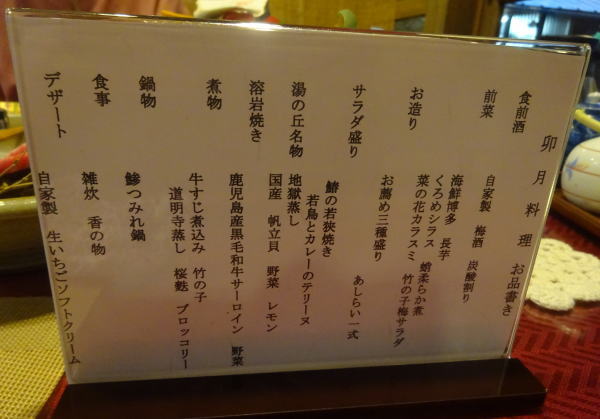 卯月料理 お品書き
食前酒 自家製 梅酒 炭酸割り
前菜 海鮮博多 長芋 蛸柔らか煮
くろめシラス 竹の子梅サラダ
菜の花カラスミ
お造り お薦め三種盛り あしらい一式
サラダ盛り 鰆の若狭焼き
若鳥とカレーのテリーヌ
湯の丘名物 地獄蒸し
国産 帆立貝 野菜 レモン
溶岩焼き 鹿児島産黒毛和牛サーロイン 野菜
煮物 牛すじ煮込み 竹の子
道明寺蒸し 桜麩 ブロッコリー
鍋物 鯵つみれ鍋
食事 雑炊 香の物
デザート 自家製 生いちごソフトクリーム